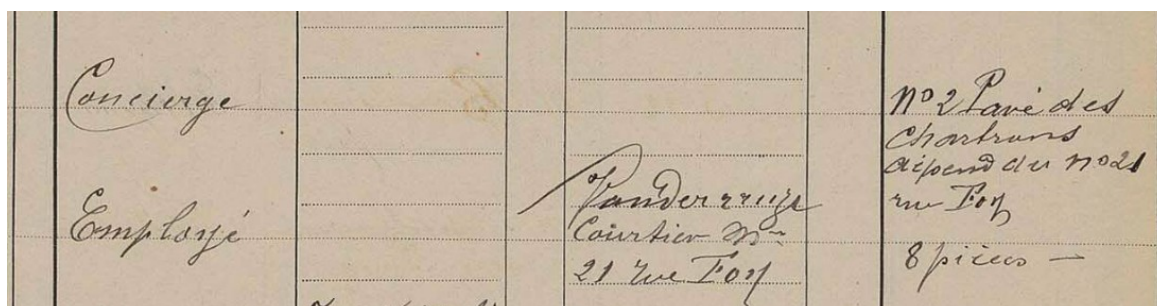 Concierge
Employé
Vandercruyc
Courtier Mne
21 rue Foy
No 2 Pavé des
Chartrons
dépend du no 21
rue Foy
8 pièces —